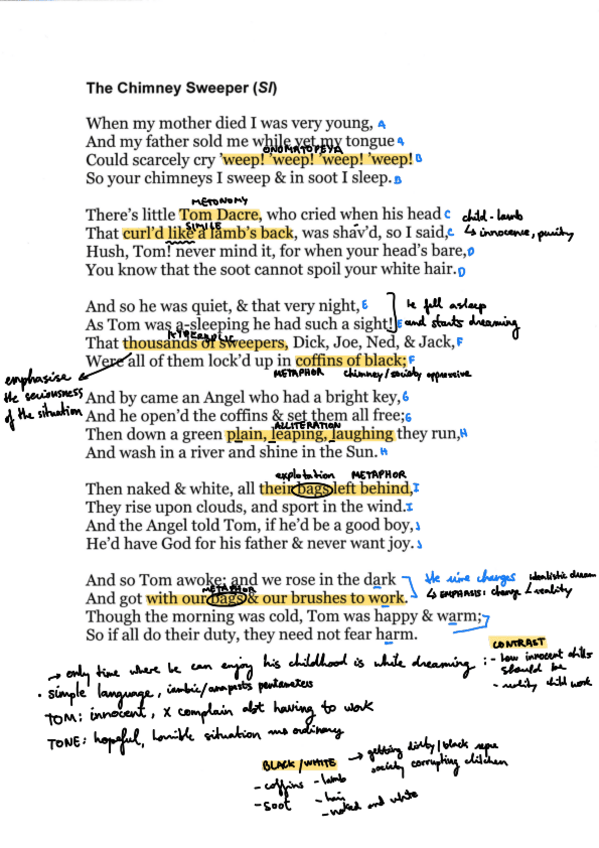 The Chimney Sweeper (SI)
When my mother died I was very young, A
And my father sold me while yet my tongue A
ONOMATOPEYA
Could scarcely cry 'weep! 'weep! 'weep! 'weep! B
So your chimneys I sweep & in soot I sleep. B
METONOMY
There's little Tom Dacre, who cried when his head C
child - lamb
SIMILE
That curl'd like a lamb's back, was shav'd, so I said, C
↳ innocence, purity
Hush, Tom! never mind it, for when your head's bare, D
You know that the soot cannot spoil your white hair. D
And so he was quiet, & that very night, E
he fell asleep
As Tom was a-sleeping he had such a sight! E
and starts dreaming
That thousands of sweepers, Dick, Joe, Ned, & Jack, F
Were all of them lock'd up in coffins of black; F
METAPHOR chimney/society oppressive
emphasise
the seriousness
of the situation
And by came an Angel who had a bright key, G
And he open'd the coffins & set them all free; G
ALLITERATION
Then down a green plain, leaping, laughing they run, H
And wash in a river and shine in the Sun. H
METAPHOR
Then naked & white, all their bags left behind, I
They rise upon clouds, and sport in the wind. I
And the Angel told Tom, if he'd be a good boy, J
He'd have God for his father & never want joy. J
And so Tom awoke; and we rose in the dark
changes
METAPHOR
And got with our bags & our brushes to work.
↳ EMPHASIS: change reality
Though the morning was cold, Tom was happy & warm;
So if all do their duty, they need not fear harm.
CONTRAST
→ only time where he can enjoy his childhood is while dreaming :
- how innocent
should be
- reality child work
• simple language, iambic/anapests pentameters
TOM: innocent, X complain abt having to work
TONE: hopeful, horrible situation ordinary
BLACK/WHITE
→ getting dirty/black
society corrupting children
- coffins - lamb
- soot - hair
- naked and white